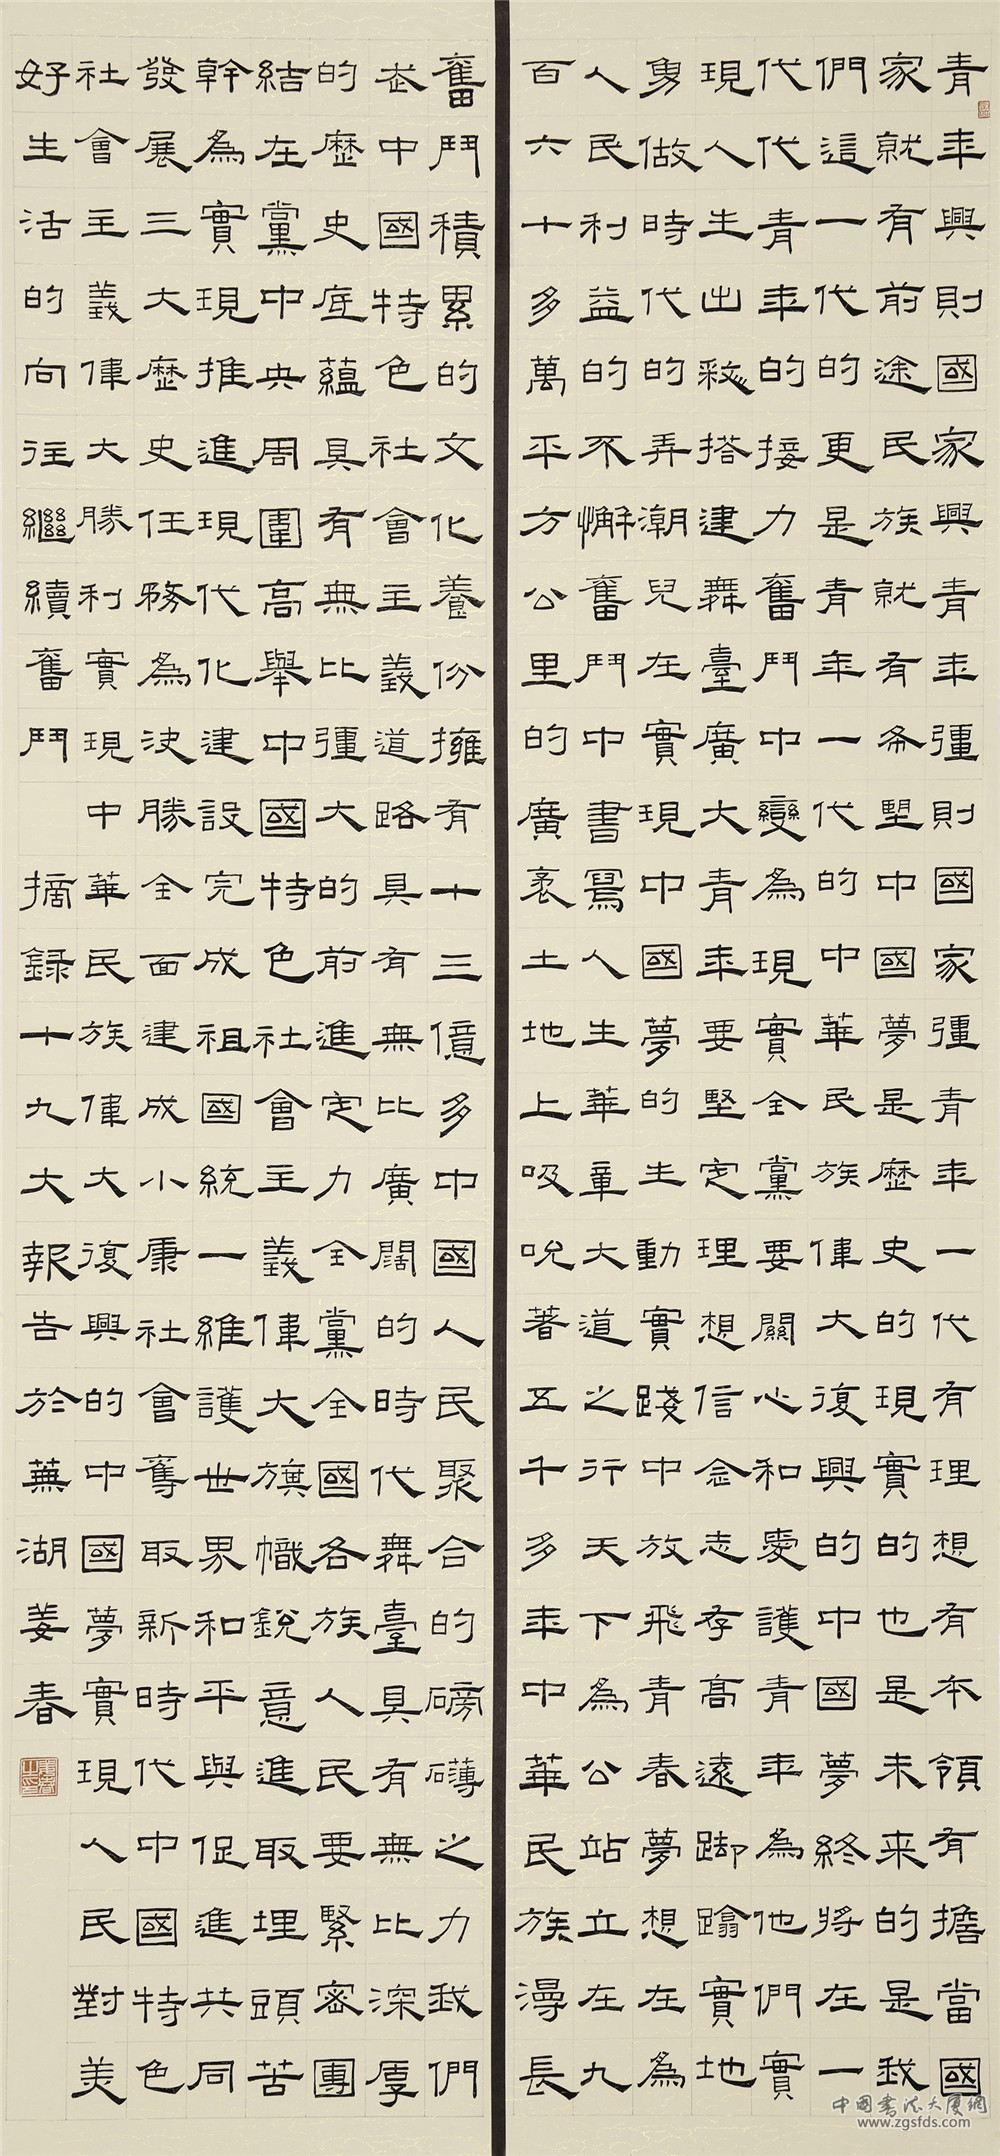 青年興則國家興青年彊則國家彊青年一代有理想有本領有擔當國
家就有前途民族就有希望中國夢是歷史的現實的也是未来的是我
們這一代的更是青年一代的中華民族偉大復興的中國夢終將在一
代代青年的接力奮鬥中變為現實全黨要關心和愛護青年為他們實
現人生出彩搭建舞臺廣大青年要堅定理想信念志存高遠脚踏實地
勇做時代的弄潮兒在實現中國夢的生動實踐中放飛青春夢想在為
人民利益的不懈奮鬥中書寫人生華章大道之行天下為公站立在九
百六十多萬平方公里的廣袤土地上吸吮著五千多年中華民族漫長
奮鬥積累的文化養份擁有十三億多中國人民聚合的磅礴之力我們
走中國特色社會主義道路具有無比廣闊的時代舞臺具有無比深厚
的歷史底蘊具有無比彊大的前進定力全黨全國各族人民要緊密團
結在黨中央周圍高舉中國特色社會主義偉大旗幟銳意進取埋頭苦
幹為實現推進現代化建設完成祖國統一維護世界和平與促進共同
發展三大歷史任務為決勝全面建成小康社會奪取新時代中國特色
社會主義偉大勝利實現中華民族偉大復興的中國夢實現人民對美
好生活的向往繼續奮鬥 摘録十九大報告於蕪湖姜春
中國書法大廈網
www.zgsfds.com